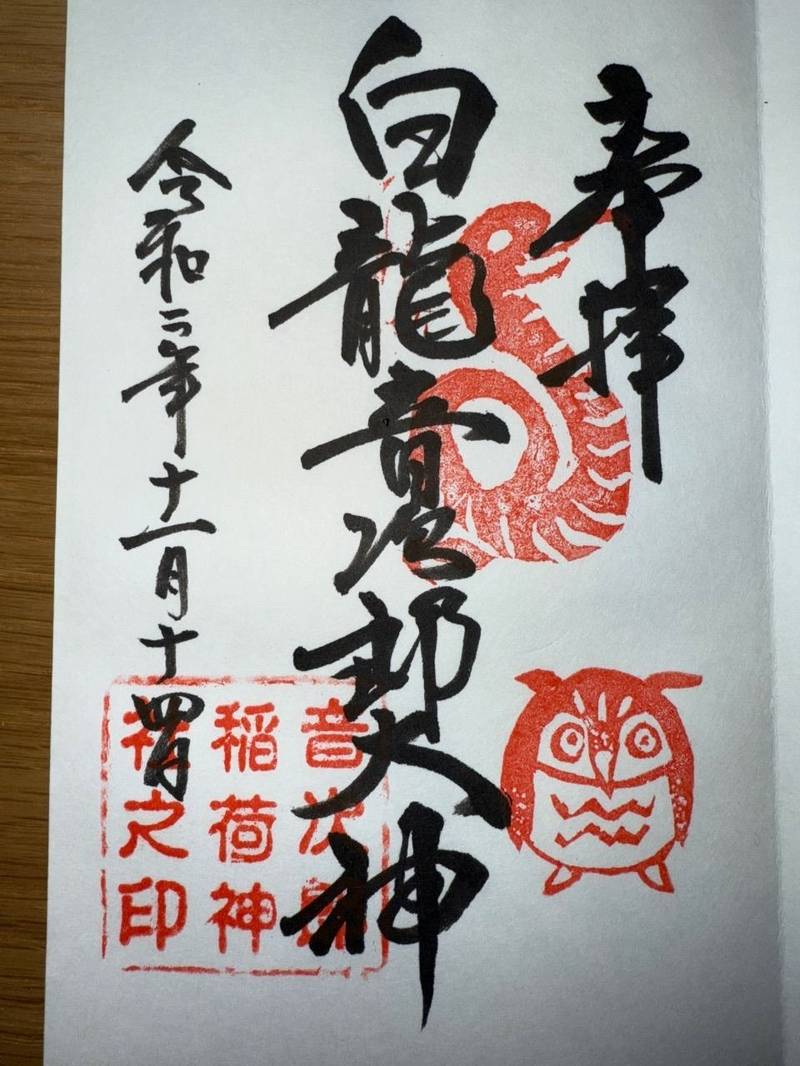 奉拝
白龍音次郎大神
令和二年十一月十四日
音次郎
稲荷神
社之印